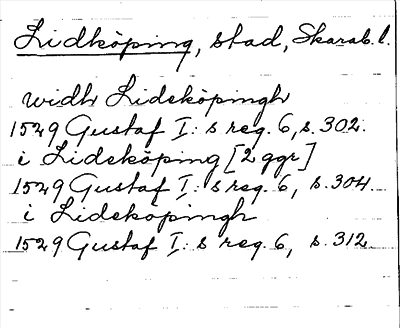 Lidköping, stad, Skarab. l.
widh Lideköpingh
1529 Gustaf I:s reg. 6, s. 302.
i Lideköping [2 ggr]
1529 Gustaf I:s reg. 6, s. 304.
i Lideköpingh
1529 Gustaf I:s reg. 6, s. 312